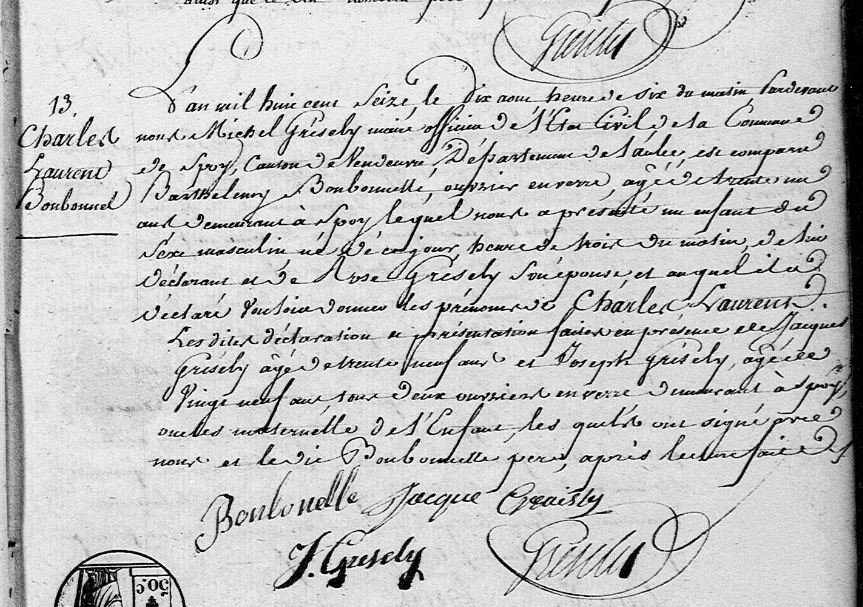 ainsi que le dit
13.
Charles
Laurent
Bonbonnel
L'an mil huit cent Seize, le Dix aout, heure de six du matin, Pardevant
nous Michel Grésely maire officier de l'Etat Civil de la Commune
de Spoy, Canton de Vendeuvre, Département de l'aube, est comparu
Barthelemy Bonbonnelle, ouvrier en verre, agé de trente un
ans demeurant à Spoy lequel nous a présenté un enfant du
Sexe masculin né de ce jour, heure de trois du matin, de lui
déclarant et de Rose Grésely Son épouse et auquel il a
déclaré Vouloir donner les prénoms de Charles Laurent.
Les dites déclaration et présentation faites en présence de Jacques
Grisély âgé de trente neuf ans et Joseph Grisely, agé de
Vingt neuf ans tous deux ouvriers en verre demeurant à Spoy,
oncles maternelle de l'Enfant, les quels ont signé avec
nous et le dit Bonbonnelle pere, après lecture faite
Bonbonelle Jacque Graisly
J. Gresely
50.C